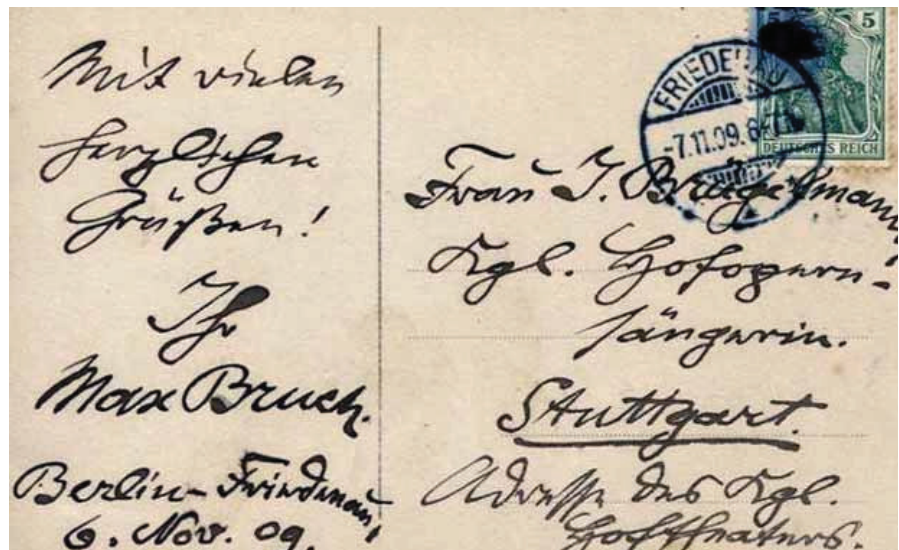 Mit vielen
herzlichen
Grüßen!
Ihr
Max Bruch.
Berlin-Friedenau,
6. Nov. 09.
5 5
DEUTSCHES REICH
FRIEDENAU
-7.11.09.
Frau J. Brügelmann
Kgl. Hofopern-
sängerin.
Stuttgart.
Adresse des Kgl.
Hoftheaters.